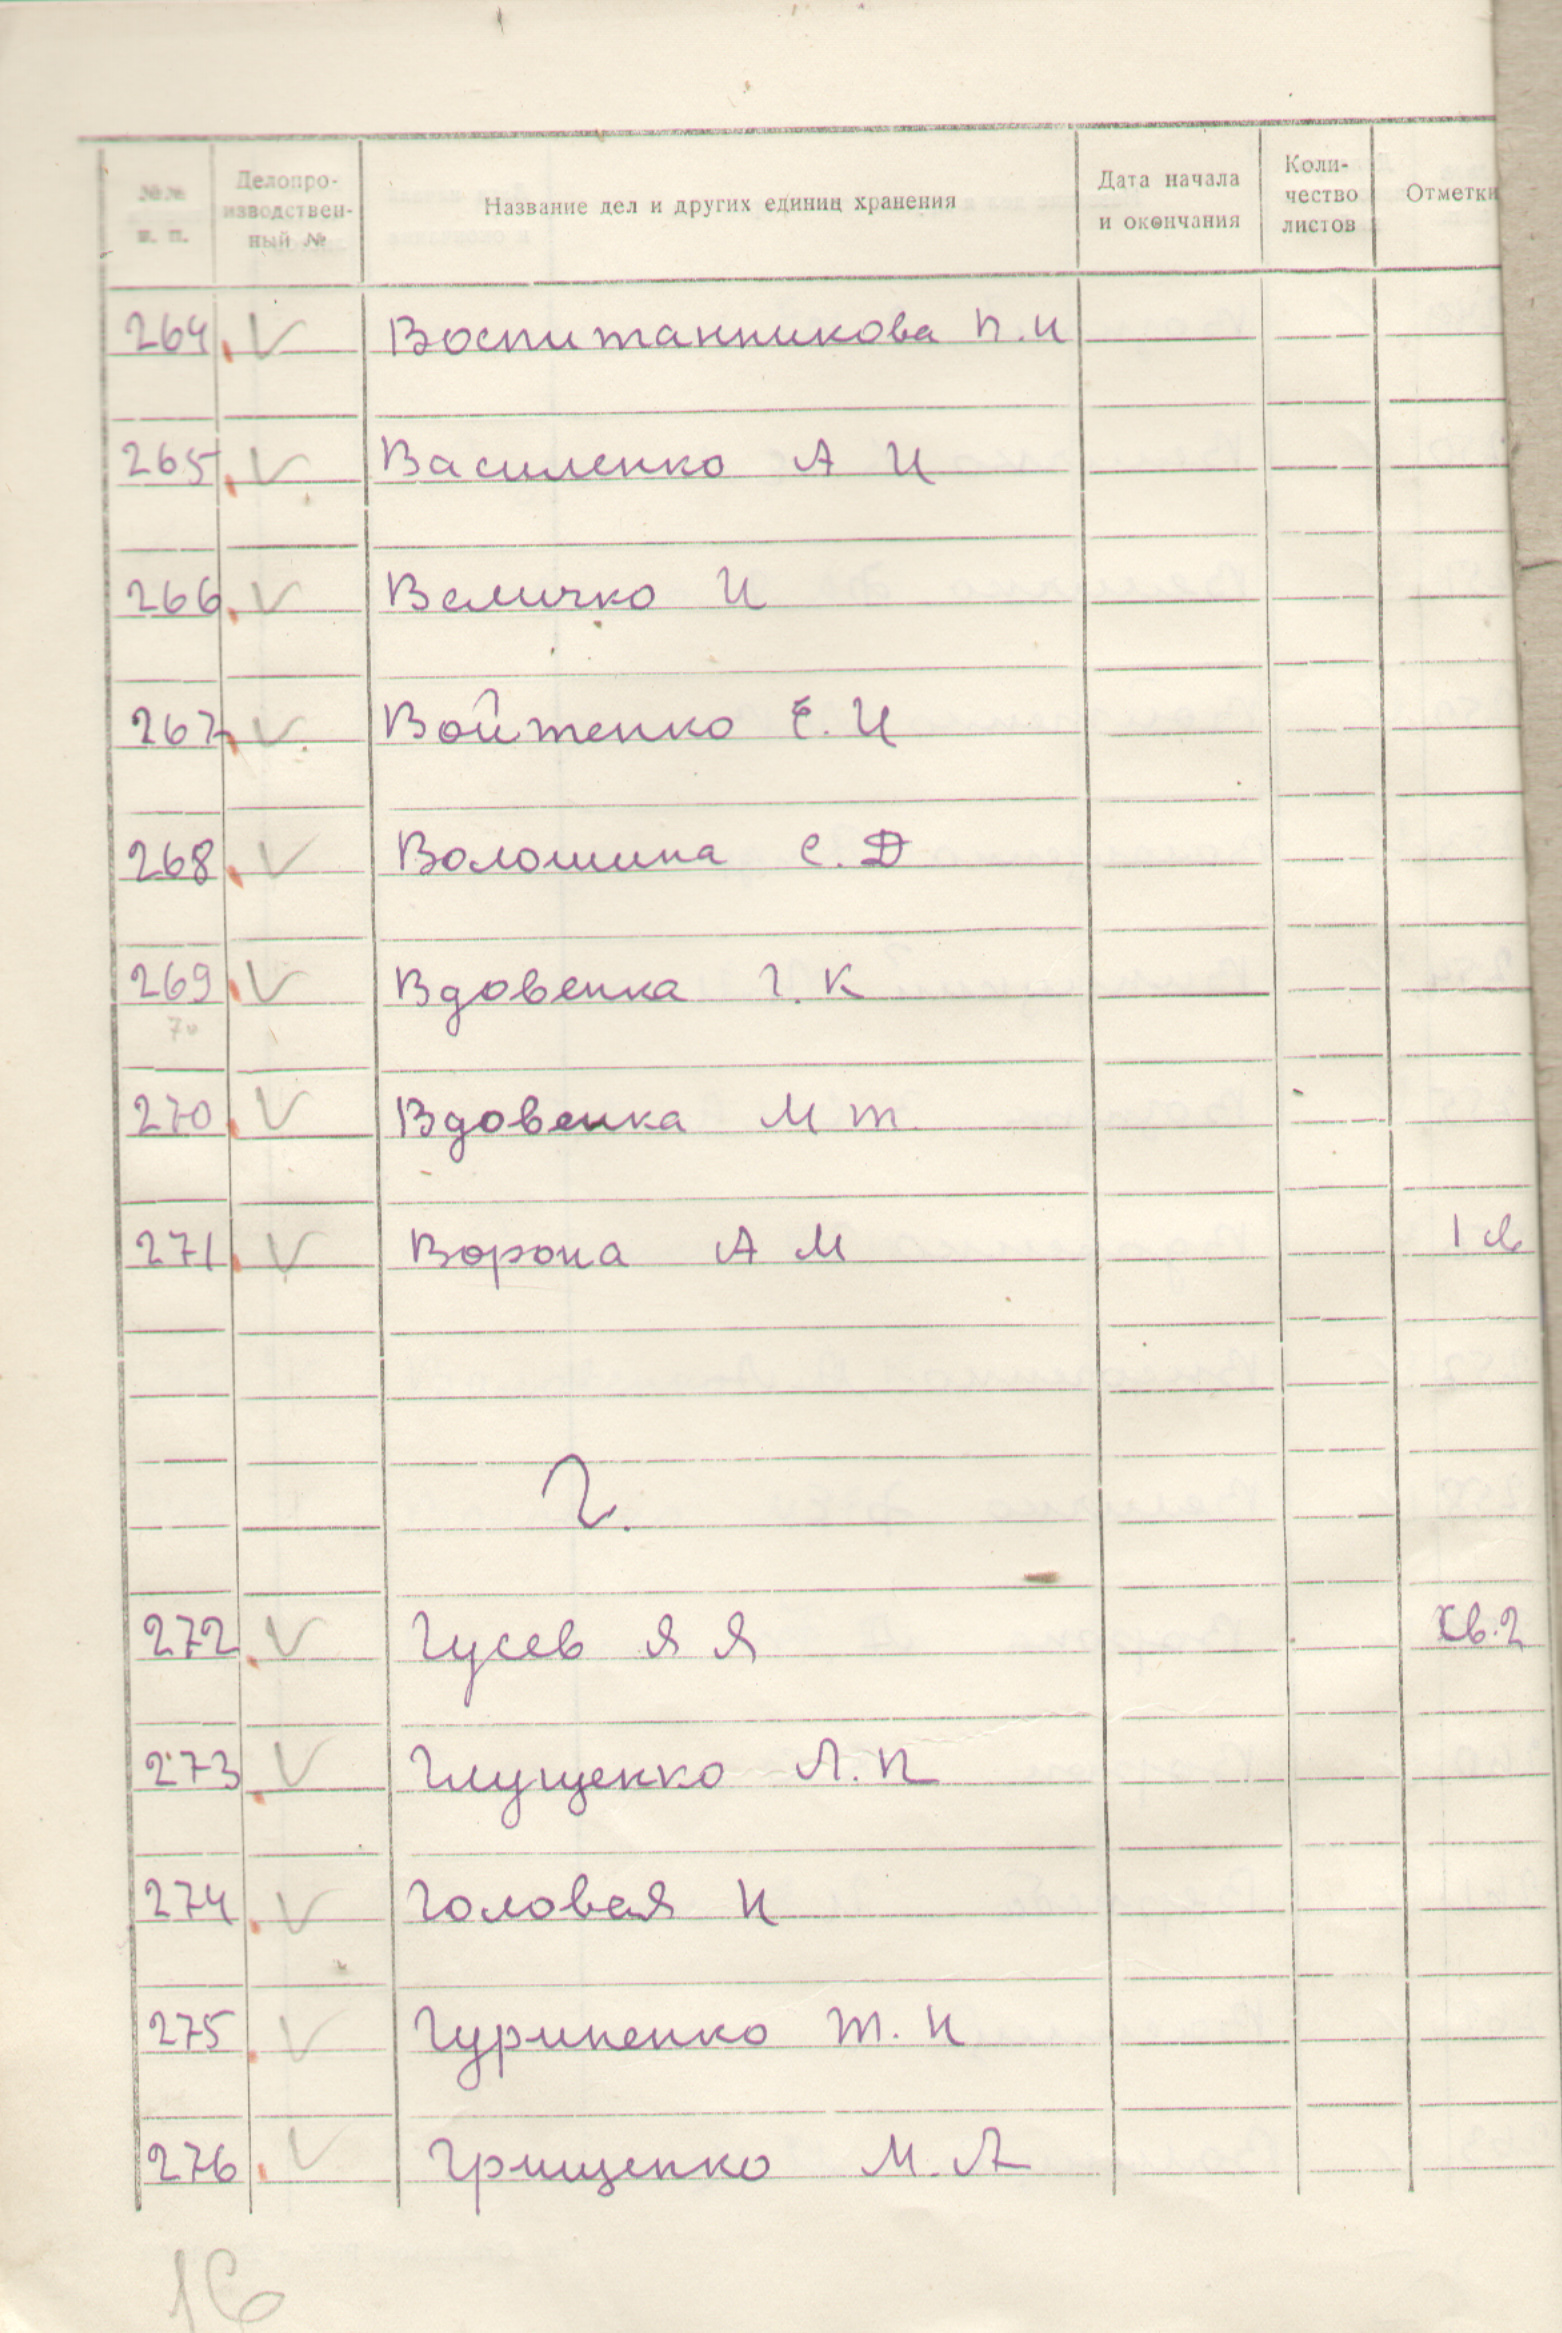 №№ п. п. Делопроизводственный № Название дел и других единиц хранения Дата начала и окончания Количество листов Отметки
264 V Воспитанникова П.И
265 V Василенко А И
266 V Величко И
267 V Войтенко Е.И
268 V Волошина С.Д
269 V Вдовенка Г.К
70
270 V Вдовенка М Т
271 V Ворона А М 1 л
Г.
272 V Гусев Я Я кв.2
273 V Глущенко Л.П
274 V Головая И
275 V Гуриненко Т.И
276 V Грищенко М.Л
16